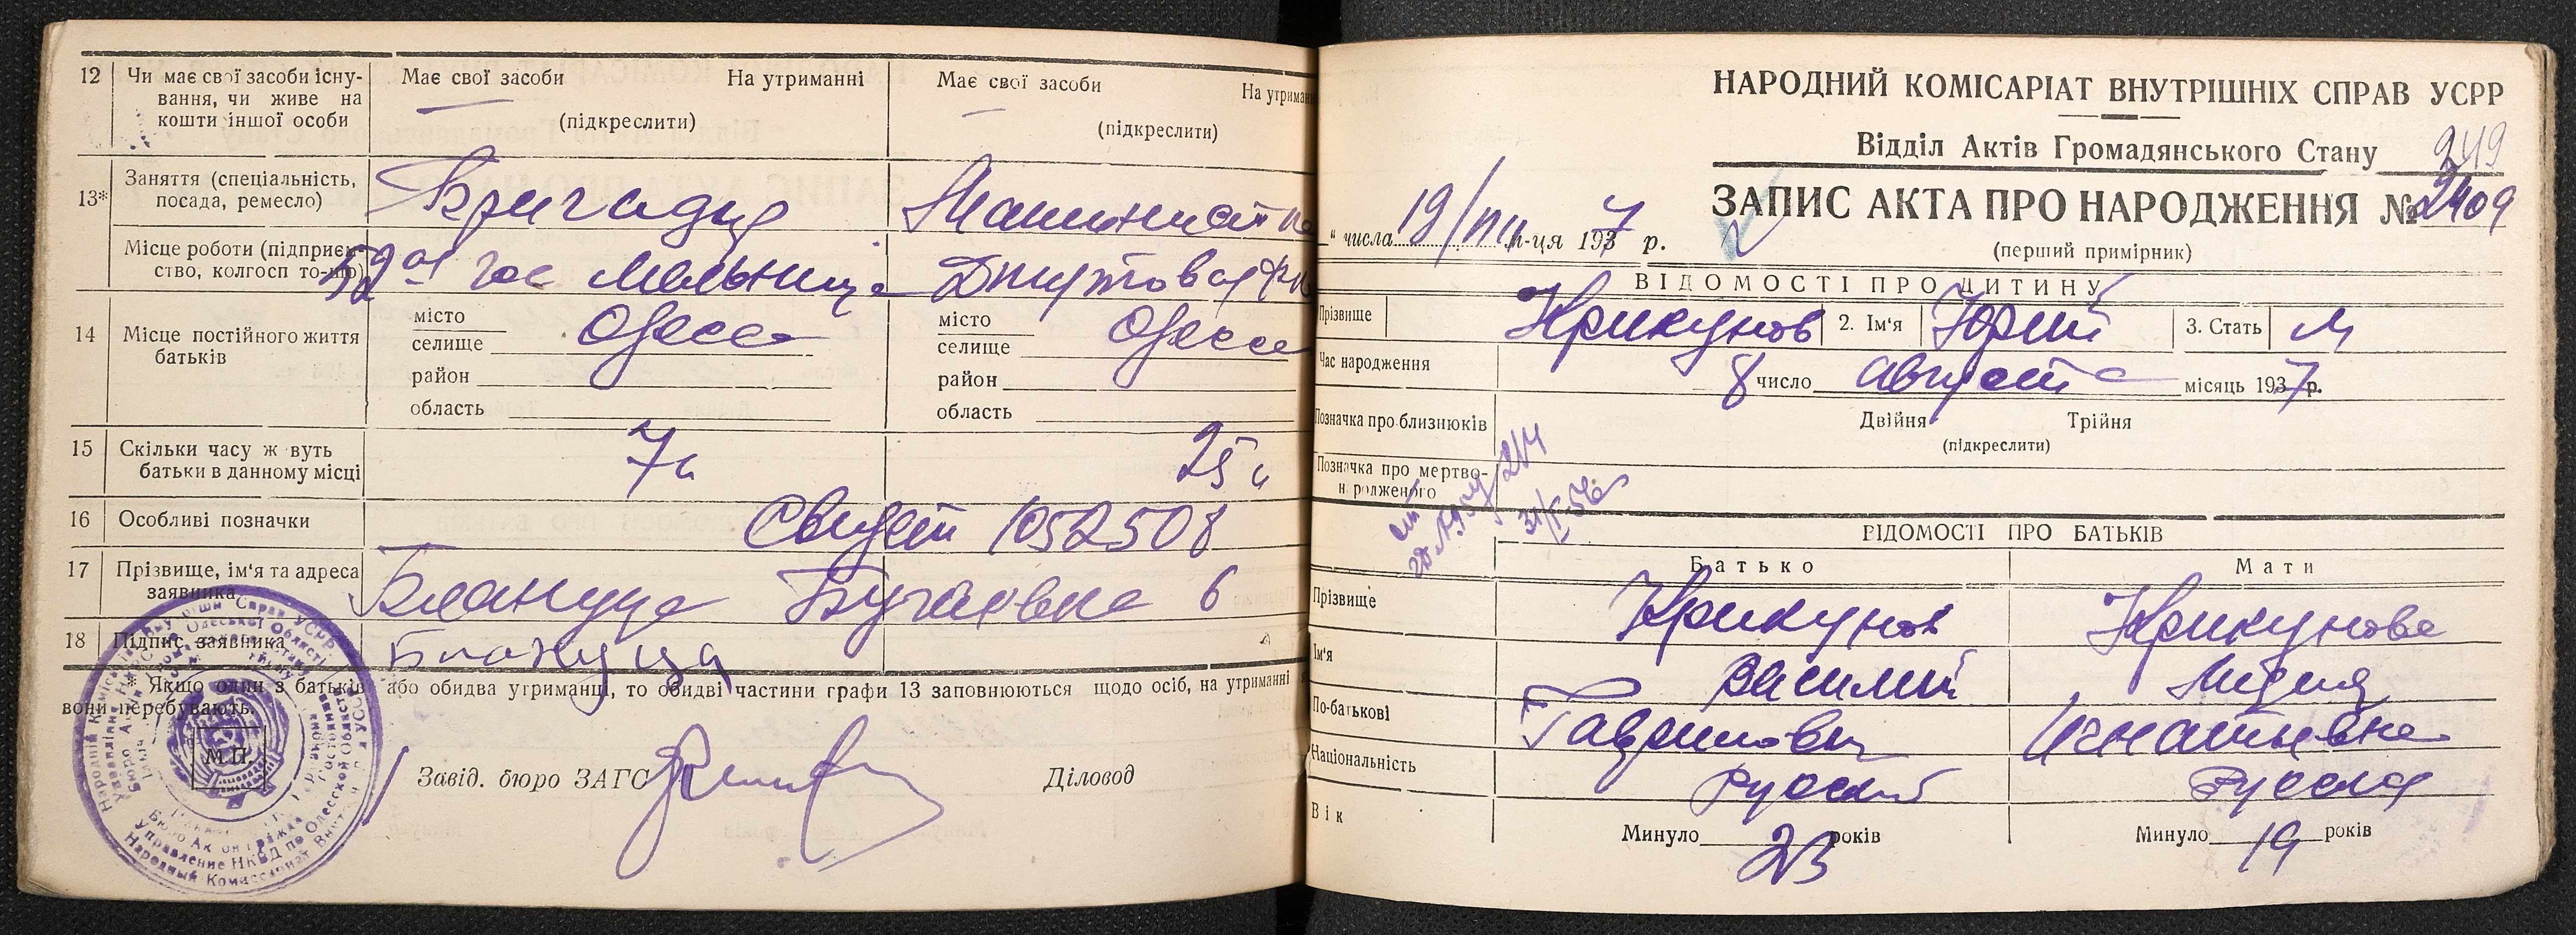 12 Чи має свої засоби існу-
вання, чи живе на
кошти іншої особи
Має свої засоби На утриманні
(підкреслити)
Має свої засоби На утриман
(підкреслити)
13* Заняття (спеціальність,
посада, ремесло)
Бригадир
Машинистка
Місце роботи (підприєм-
ство, колгосп то-що)
гос мельница
Джутовая
14 Місце постійного життя
батьків
місто Одесса
селище
район
область
місто Одесса
селище
район
область
15 Скільки часу ж вуть
батьки в данному місці
7
25
16 Особливі позначки
Свидет 1052508
17 Прізвище, ім'я та адреса
заявника
Блануца Бугаевка 6
18 Підпис заявника
Блануца
* Якщо один з батьків або обидва утриманці, то обидві частини графи 13 заповнюються щодо осіб, на утриманні
вони перебувають.
М.П.
Завід. бюро ЗАГС
Діловод
НАРОДНИЙ КОМІСАРІАТ ВНУТРІШНІХ СПРАВ УСРР
Відділ Актів Громадянського Стану
249
ЗАПИС АКТА ПРО НАРОДЖЕННЯ № 2409
" числа 19/VIII м-ця 1937 р.
(перший примірник)
ВІДОМОСТІ ПРО ДИТИНУ
Прізвище Крикунов 2. Ім'я Юрий 3. Стать М
Час народження 8 число августа місяць 1937 р.
Позначка про близнюків
Двійня Трійня
(підкреслити)
Позначка про мертво-
н родженого
ВІДОМОСТІ ПРО БАТЬКІВ
Батько Мати
Прізвище Крикунов Крикунова
Ім'я Василий Лидия
По-батькові Гаврилович Игнатьевна
Національність Русский Русская
Вік Минуло 23 років Минуло 19 років